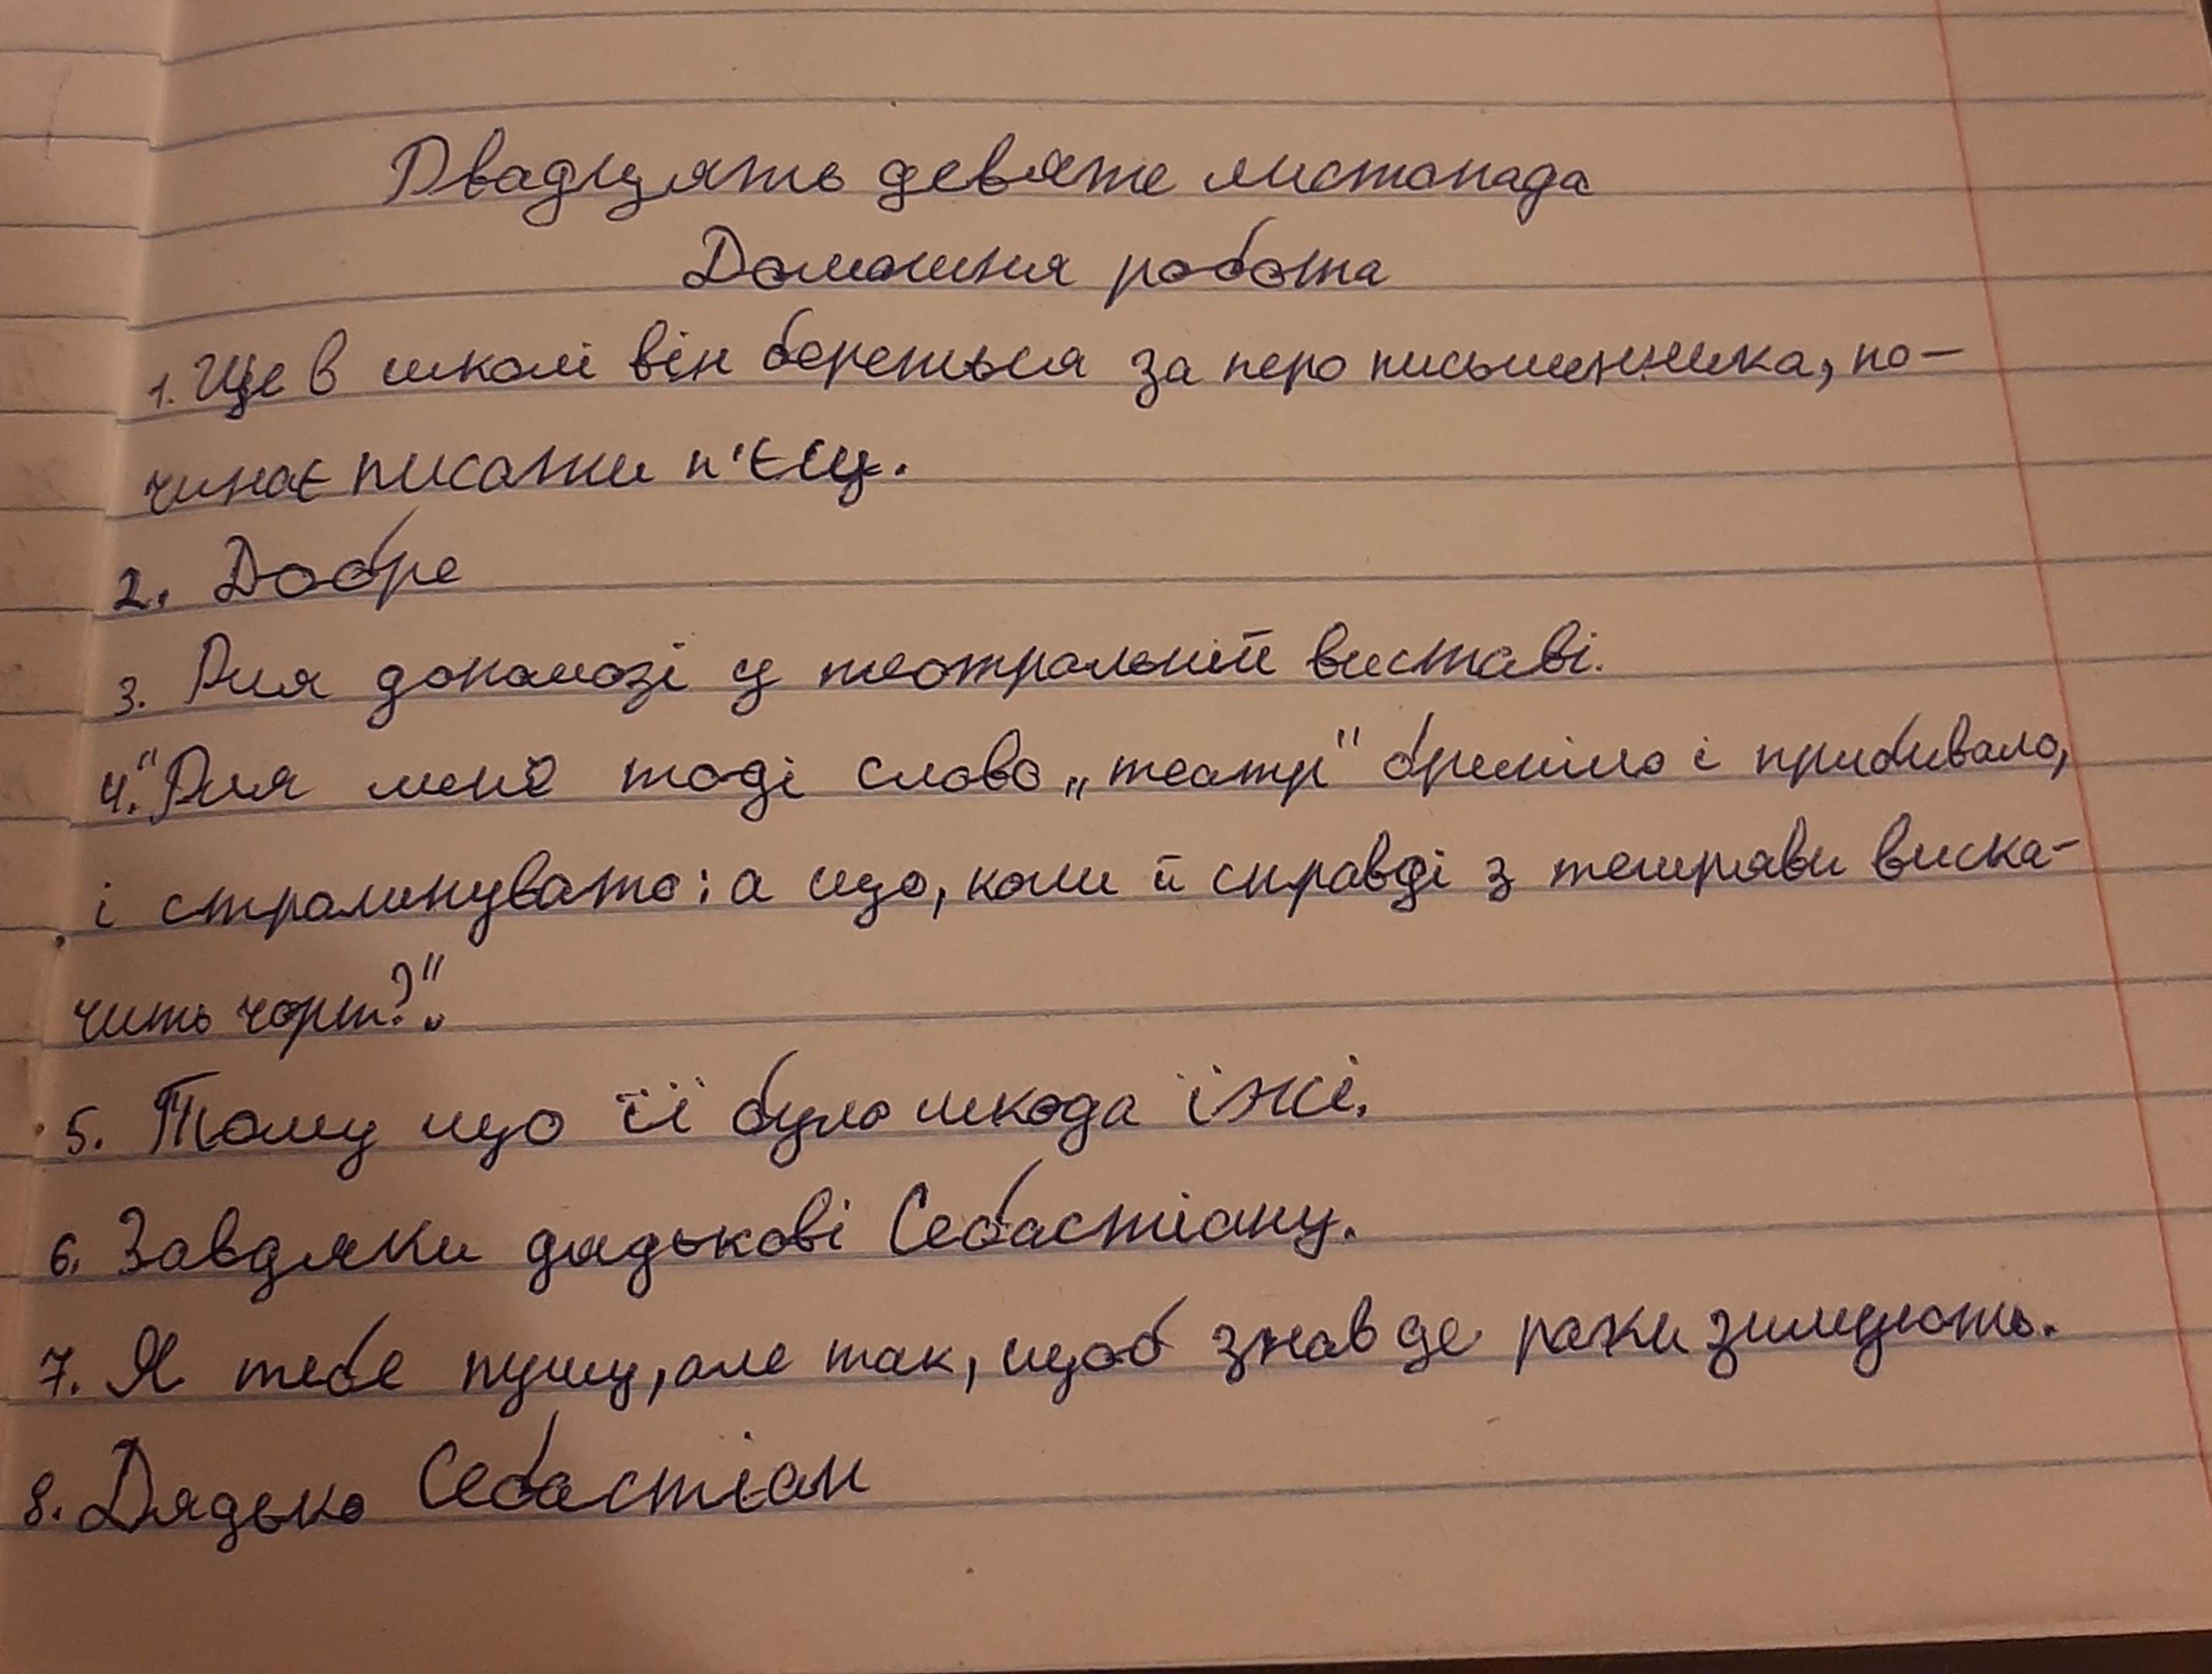 Двадцять девяте листопада
Домашня робота
1. Ще в школі він береться за перо письменника, по-
чинає писати п'єсу.
2. Добре
3. Для допомозі у театральній виставі.
4. "Для мене тоді слово „театр" бреніло і прибивало,
і страшнувато: а що, коли й справді з темряви виска-
чить чорт?".
5. Тому що її було шкода їжі.
6. Завдяки дядькові Себастіану.
7. Я тебе пущу, але так, щоб знав де раки зимують.
8. Дядько Себастіан